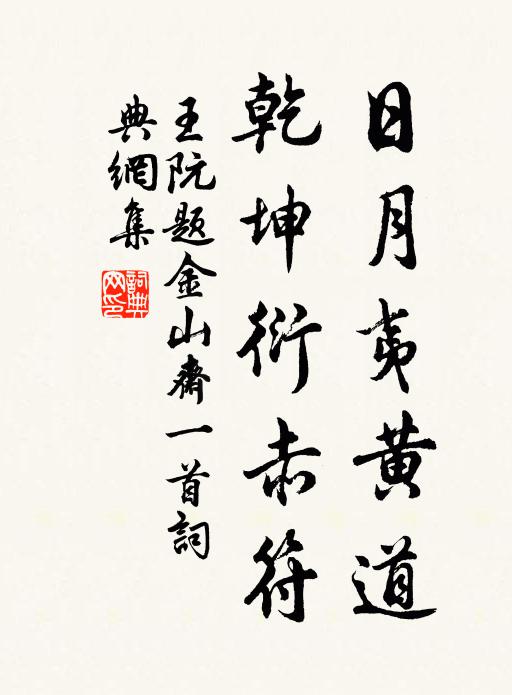 日月夷黄道
乾坤衍赤符
王阮题金山斋一首詞
典網集
詞典网印